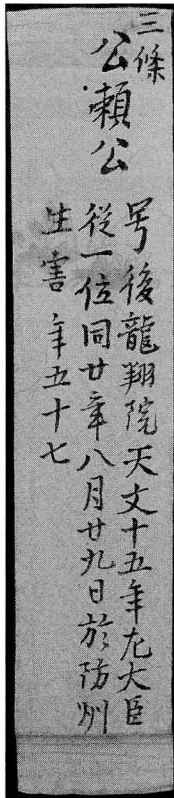 三條
公頼公
号後龍翔院天文十五年左大臣
從一位同廿年八月廿九日於防州
生害年五十七